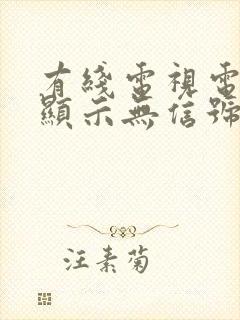 有綫電視電
顯示無信號
汪素菊